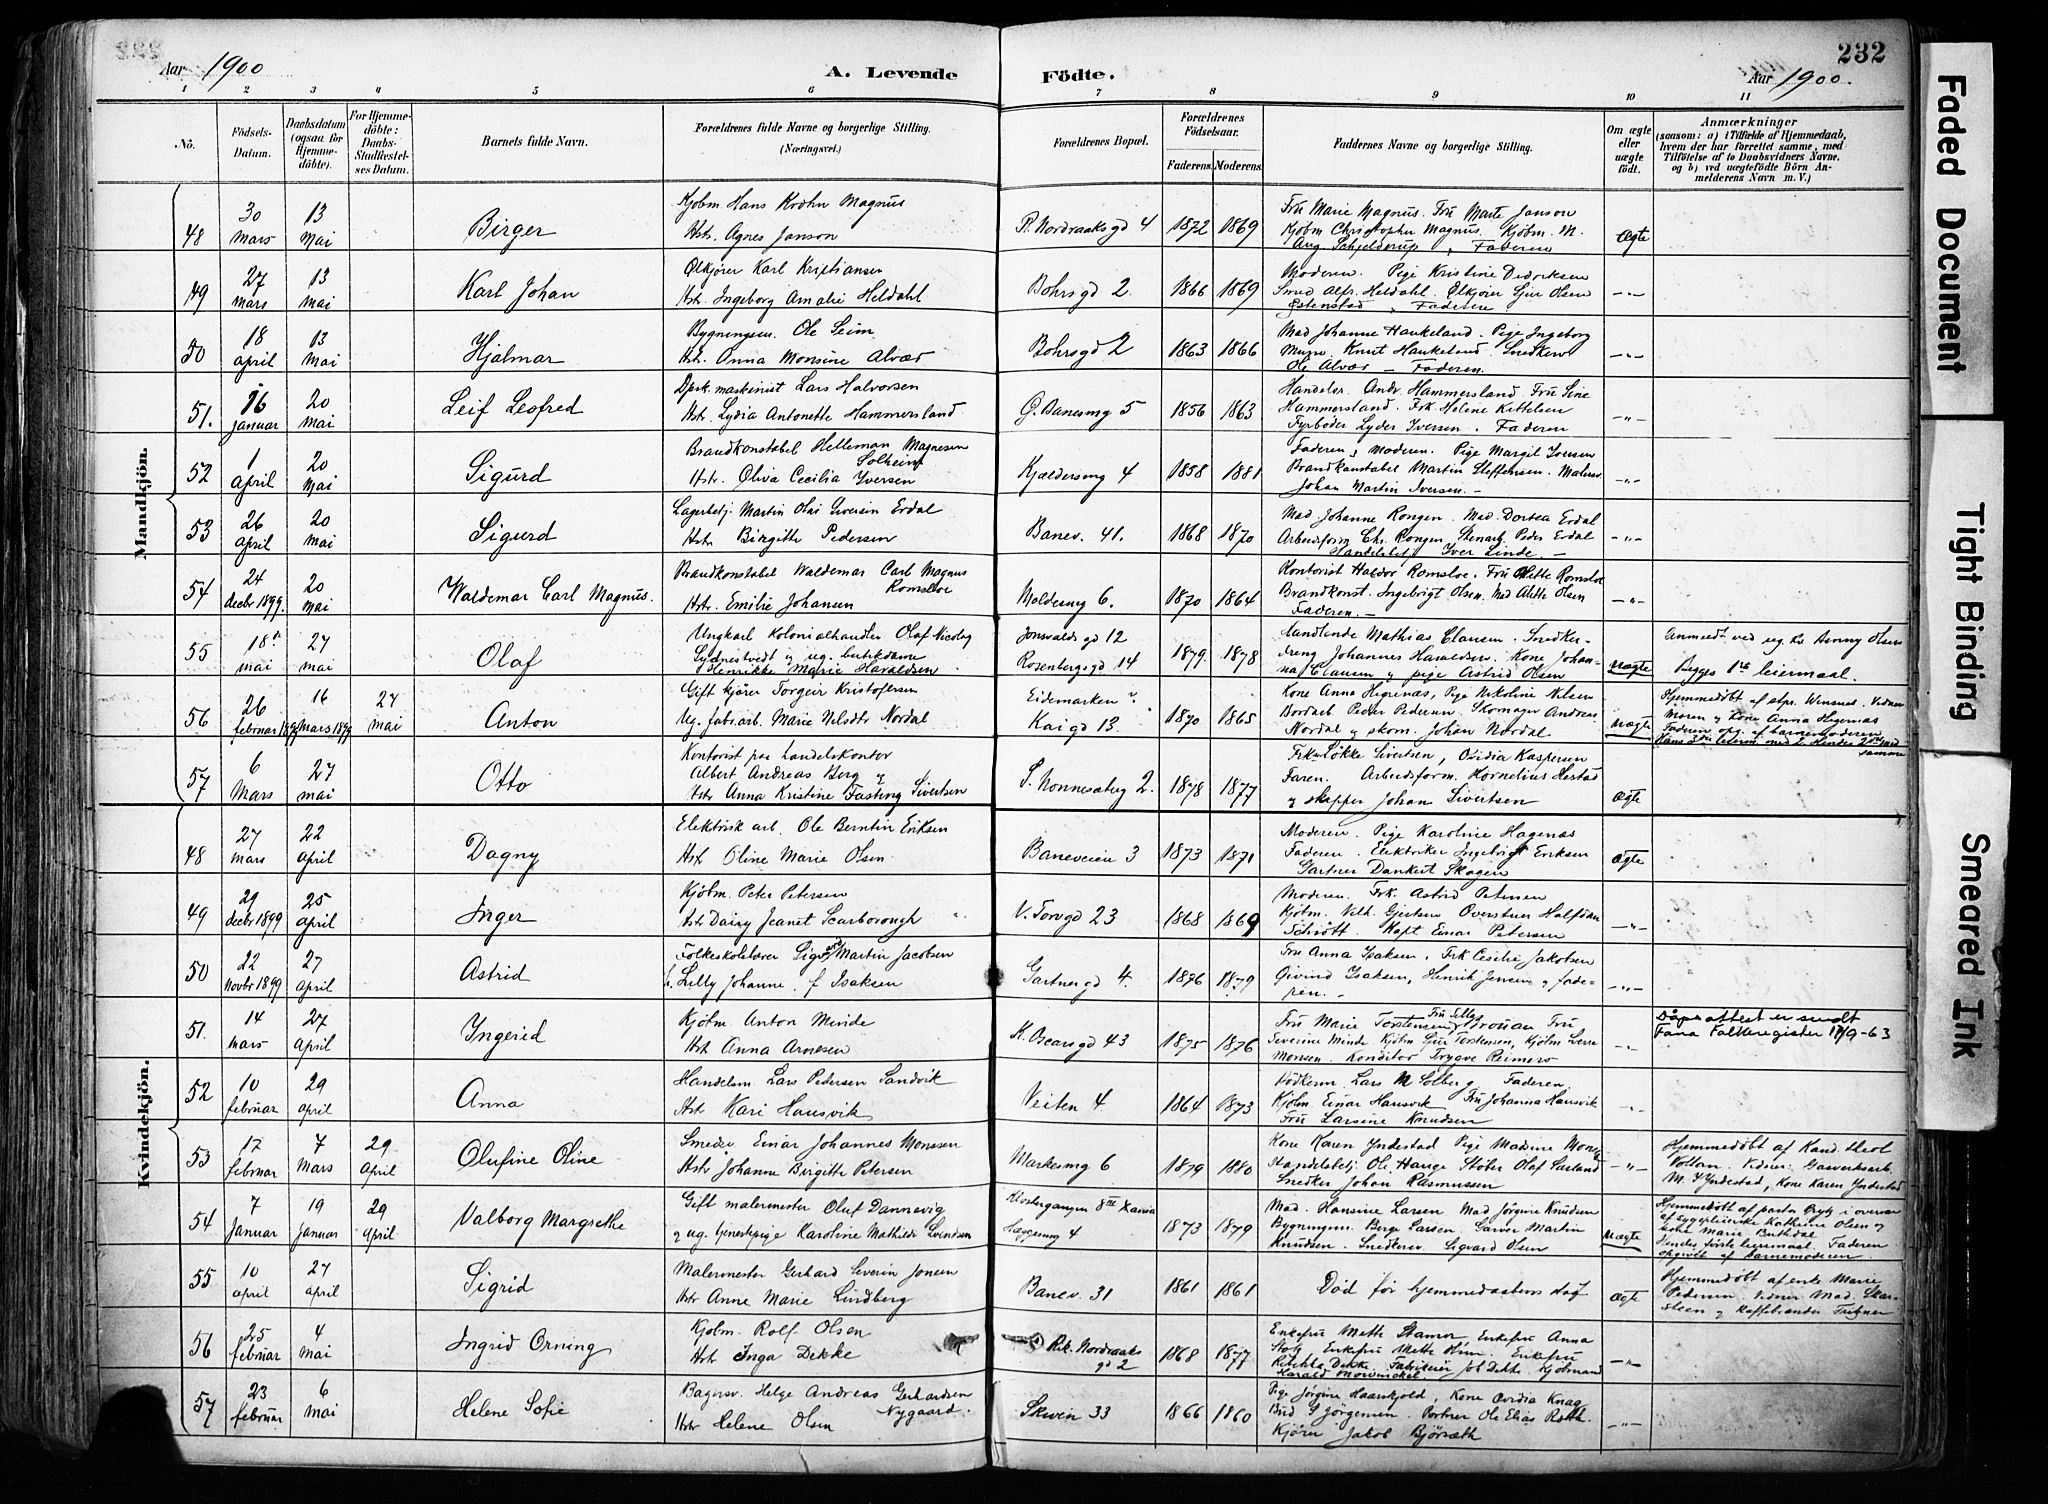 232
Aar 1900
A. Levende Födte.
Aar 1900.
1 2 3 4 5 6 7 8 9 10 11
No.
Födsels-Datum.
Daabsdatum (ogsaa för Hjemmedöbte).
For Hjemmedöbte: Daabs-Stadfæstelses Datum.
Barnets fulde Navn.
Forældrenes fulde Navne og borgerlige Stilling. (Næringsvei.)
Forældrenes Bopæl.
Forældrenes Födselsaar.
Faderens. Moderens.
Faddernes Navne og borgerlige Stilling.
Om ægte eller uægte født.
Anmærkninger
(saasom: a) i Tilfælde af Hjemmedaab,
hvem der har forrettet samme, med
Tilföielse af to Daabsvidners Navne.
og b) ved uægtefödte Börn An-
melderens Navn m. V.)
Mandkjön.
48 30 Mars 13 Mai Birger
Kjøbm. Hans Krohn Magnus
Hstr. Agnes Janson
R. Nordraaksgd 4 1872 1869
Fru Marie Magnus. Fru Marte Janson
Kjøbm Christopher Magnus. Kjøbm. M.
Aug Schjelderup, Faderen
Ægte
49 27 mars 13 mai Karl Johan
Ølkjører Karl Kristiansen
Hstr. Ingeborg Amalie Heldahl
Bohrsgd 2. 1866 1869
Moderen. Pige Kristine Didriksen
Smed Alfr. Heldahl. Ølkjører Sjur Olsen
Østenstad, Faderen
50 18 april 13 mai Hjalmar
Ole Seim
Hstr. Anna Monsine Alvær
Bohrsgd 2 1863 1866
Mad Johanne Haukeland. Pige Ingeborg
Knut Haukeland. Snedkersv
Ole Alvær – Faderen.
51. 16 januar 20 mai Leif Leofred
Dpsk. maskinist Lars Halvorsen
Hstr. Lydia Antonette Hammersland.
G. Banesmg 5 1856 1863
Handelsr. Andr. Hammersland Fru Sine
Hammersland. Frk. Helene Kittelsen
Fyrbøder Lyder Iversen. Faderen
52 1 april 20 Mai Sigurd
Brandkonstabel Helleman Magnesen
Solheim
Hstr. Oliva Cecilia Iversen
Kjeldersmg 4 1858 1881
Faderen, Moderen. Pige Margit Iversen
Brandkonstabel Martin Steffensen. Malersv
Johan Martin Iversen. –
53 26 april 20 mai Sigurd
Lagerbetj. Martin Olai Iversen Erdal
Hstr Birgitte Pedersen
Banev. 41. 1868 1870
Mad Johanne Rongen. Mad Dortea Erdal
Arbeidsform Chr. Rongen Stenarb. Peder Erdal
Handelsbetj Iver Linde. –
54 24 decbr 1899. 20 mai Waldemar Carl Magnus.
Brandkonstabel Waldemar Carl Magnus
Romsloe
Hstr. Emilie Johansen
Moldesmg 6. 1870 1864
Kontorist Haldor Romsloe. Fru Mette Romsloe
Brandkonst. Ingebrigt Olsen. Mad Alette Olsen
Faderen. –
55 18 mai 27 mai Olaf
Ungkarl Kolonialhandler Olaf Nicolay
Sydnestvedt og ug. butikdame
Henrikke Marie Haraldsen
Jonsvoldsgd 12
Rosenbergsgd 14 1879. 1878
Mathias Clausen. Snedker-
dreng Johannes Haraldsen. Kone Johan-
na Clausen og pige Astrid Olsen
uægte
Anmeldt ved ug. Henny Olsen
Begges 1ste leiermaal.
56 26 februar 1899 16 Mars 1899 27 mai Anton
Gift kjører Torgeir Kristofersen
Ug. fabr.arb. Marie Nilsdtr Nordal
Eidemarken ?
Kaigd 13. 1870 1865
Kone Anna Hegrenæs, Pige Nikoline Nilsen
Bordarb Peder Pedersen. Skomager Andreas
Nordal og skom. Johan Nordal.
uægte
Moren og Kone Anna Hegrenæs
Faderen opg. af barnemoderen
57 6 Mars 27 mai Otto
Kontorist paa handelskontor
Albert Andreas Berg og
Hstr Anna Kristine Fasting Sivertsen
S. Nonnesøteg 2. 1878 1877
Frk. Løkke Sivertsen, Ovidia Kaspersen
Faren. Arbeidsform. Kornelius Herstad
og skipper Johan Sivertsen
ægte
Kvindekjön.
48 27 mars 22 april Dagny
Elektrisk arb. Ole Berntin Eriksen
Hst Oline Marie Olsen
Baneveien 3 1873 1871
Moderen. Pige Karoline Hagenæs
Faderen. Elektriker Ingebrigt Eriksen
Gartner Dankert Skagen
ægte
49 29 decbr 1899 25 april Inger
Kjøbm. Peter Petersen
Hstr Daisy Jeanet Scarborough
V. Torvgd 23 1868 1869
Moderen. Frk. Astrid Petersen
Kjøbm. Vilh. Gjertsen Overstuer Halfdan
Schrøtt. Kapt Einar Petersen
50 22 novbr 1899 27 april Astrid
Folkeskolelærer Sigurd Martin Jacobsen
h. Lilly Johanne f Isaksen
Gartnergd 4. 1876 1879
Fru Anna Isaksen. Frk Cecilie Jakobsen
Øivind Isaksen, Henrik Jensen og fade-
ren. –
51. 14 mars 27 april Ingerid
Kjøbm. Anton Minde
Hst Anna Arnesen
K. Oscarsgd 43 1875 1876
Fru Marie Torstensen
Severine Minde. Kjøbm Sjur Torstensen, Kjøbm Lerre
Monsen. Konditor Trygve Reimers
Dåpsattest er sendt
Fana Folkeregister 17/9-63
52 10 februar 29 april Anna
Handelsm. Lars Pedersen Sandvik
Hst Kari Hausvik
Veiten 4 1864 1873
Lars M Solberg. Faderen.
Kjøbm Einar Hausvik Fru Johanna Hausvik
Fru Larsine Knudsen
53 17 februar 7 Mars 29 april Olufine Oline
Smedsv Einar Johannes Monssen
Hstr Johanne Birgitte Petersen
Markesmg 6 1879 1880
Kone Karen Yndestad Pige Madsine Mons
Handelsbetj. Ole Hauge Støber Olaf Sæland
Snedker Johan Rasmussen
Hjemmedøbt af Kand. theol
Voltan. Vidner: Gasverksarb.
M. Yndestad, Kone Karen Yndestad
54 7 Januar 19 Januar 29 april Valborg Margrethe
Gift malermester Oluf Dannevig
og ug. tjenestepige Karoline Mathilde Svendsen
Klostergangen 8 III Xania
Hæggesmg 4 1873 1879
Mad. Hansine Larsen Mad Jørgine Knudsen
Bygningsm. Berge Larsen Garver Martin
Knudsen. Snedkersv. Sigvard Olsen
uægte
Hjemmedøbt af pastor Gryts i overvær
af sygepleierske Kathrine Olsen og
Marie Buthdal
Hendes første leiermaal. Faderen
opgivet af barnemoderen.
55 10 april 27 april Sigrid
Malermester Gerhard Severin Jensen
Hstr Anne Marie Lindberg
Banev. 31 1861 1861
Død før hjemmedaabens stadf
ægte
Hjemmedøbt af enke Marie
Pedersen. Vidner Mad. Skar-
steen og kaffebrænder Tribner
56 25 februar 4 Mai Ingrid Orning
Kjøbm. Rolf Olsen
Hstr Inga Dekke
Rik. Nordraaks
gd 2 1868 1877
Enkefru Mette Stamer Enkefru Anna
Stolz Enkefru Mette Olsen. Enkefru
Rebekka Dekke. Fabrikeier Joh Dekke Kjøbmand
Harald Mowinckel
57 23 februar 6 mai Helene Sofie
Bagersv. Helge Andreas Gerhardsen
Nygaard.
Hstr Helene Olsen
Skivein 33 1866 1860
Pige Jørgine Haaskjold, Kone Ovidia Knag
Bud G Jørgensen. Portner Ole Elias Røtth
Kjører Jakob Bjørsæth
Faded Document
Tight Binding
Smeared Ink